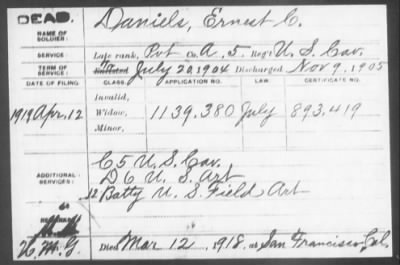 DEAD.
NAME OF SOLDIER: Daniels, Ernest C.
SERVICE: Late rank, Pvt Co. A, 5 Reg't U. S. Cav.
TERM OF SERVICE: Enlisted July 20, 1904 Discharged Nov 9, 1905
DATE OF FILING. CLASS. APPLICATION NO. LAW. CERTIFICATE NO.
Invalid,
1919 Apr. 12 Widow, 1139.380 July 893.419
Minor,
ADDITIONAL SERVICES: C 5 U. S. Cav.
D 6 U. S. Art
12 Batty U. S. Field Art
REMARKS:
Died Mar 12, 1918, at San Francisco, Cal.